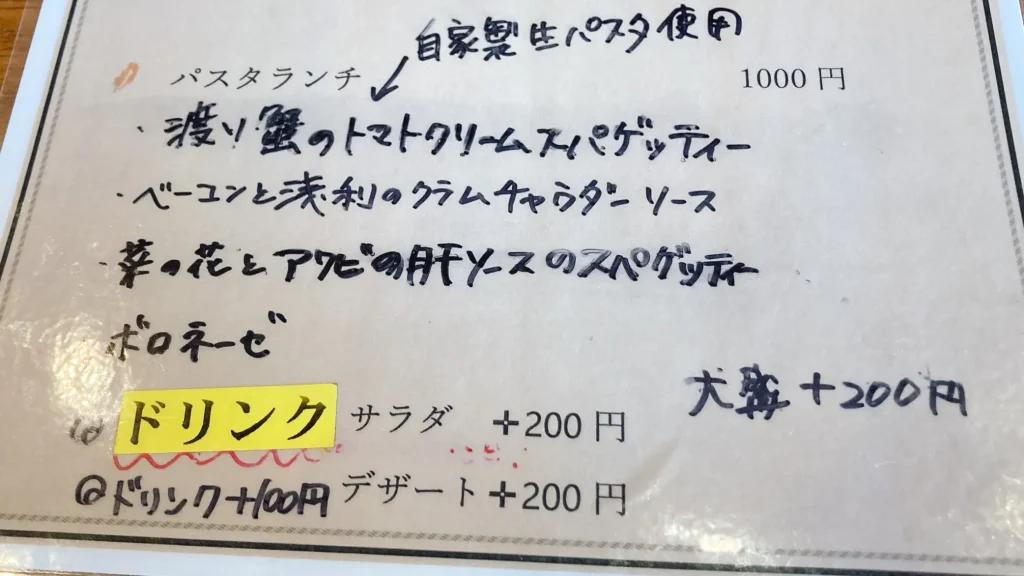 自家製生パスタ使用
パスタランチ 1000円
・渡り蟹のトマトクリームスパゲッティー
・ベーコンと浅利のクラムチャウダーソース
・菜の花とアワビの肝ソースのスパゲッティー
ボロネーゼ
大盛+200円
ドリンク サラダ +200円
@ドリンク+100円 デザート+200円